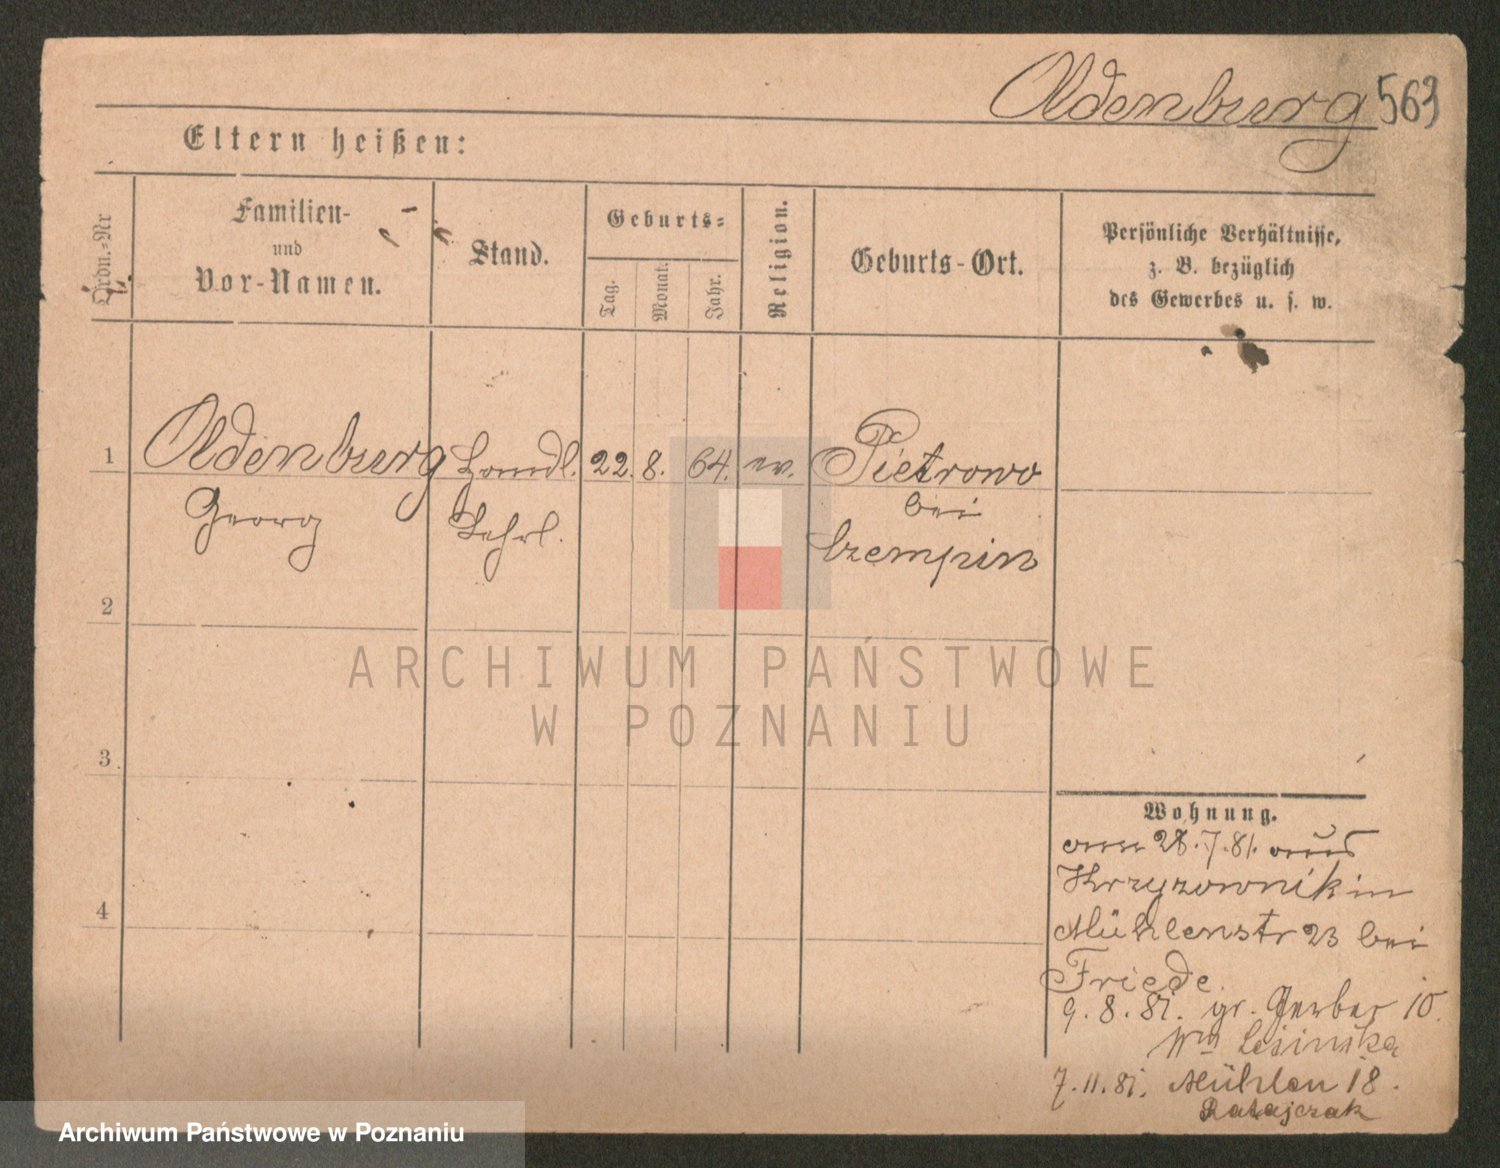 Oldenburg 563
Eltern heißen:
Ordn.=Nr
Familien-
und
Vor-Namen.
Stand.
Geburts=
Tag.
Monat.
Jahr.
Religion.
Geburts-Ort.
Persönliche Verhältnisse,
z. B. bezüglich
des Gewerbes u. s. w.
1 Oldenburg Handl. 22. 8. 64. ev. Pietrowo
Georg Lehrl. bei
Czempin
2
3
4
Wohnung.
am 28.7.81. aus
Krzyzownik in
Mühlenstr 23 bei
Friede.
9.8.81. gr. Gerber 10.
Ww Lesinska
7.11.81. Mühlen 18.
Ratajczak
ARCHIWUM PAŃSTWOWE
W POZNANIU
Archiwum Państwowe w Poznaniu